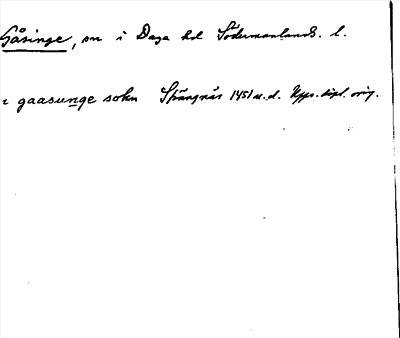 Gåsinge, sn i Daga hd Södermanlands. l.
i gaasunge sokn Strängnäs 1451 u.d. Upps. dipl. orig.